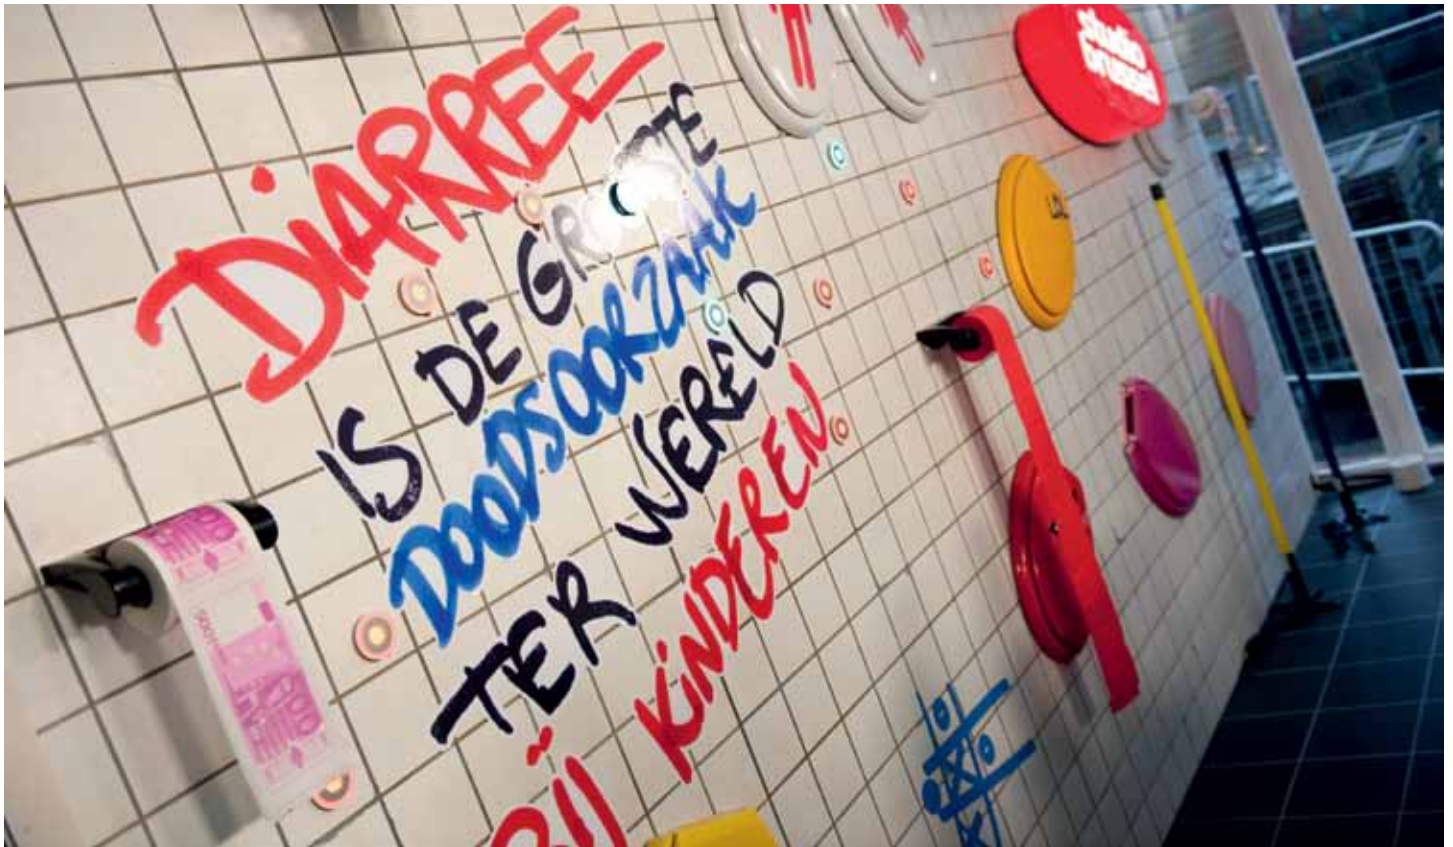 DIARREE
IS DE GROOTSTE
DOODSOORZAAK
TER WERELD
BIJ KINDEREN
studio
brussel
500
500